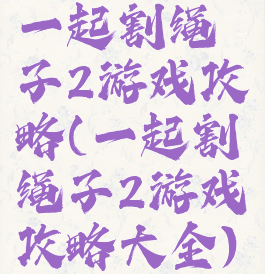 一起割绳
子2游戏攻
略(一起割
绳子2游戏
攻略大全)